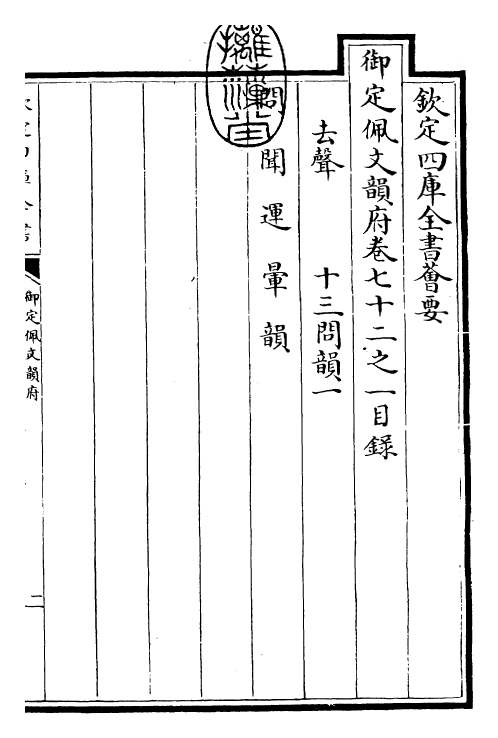 欽定四庫全書薈要
御定佩文韻府卷七十二之一目錄
去聲 十三問韻一
問 聞 運 暈 韻
御定佩文韻府
二